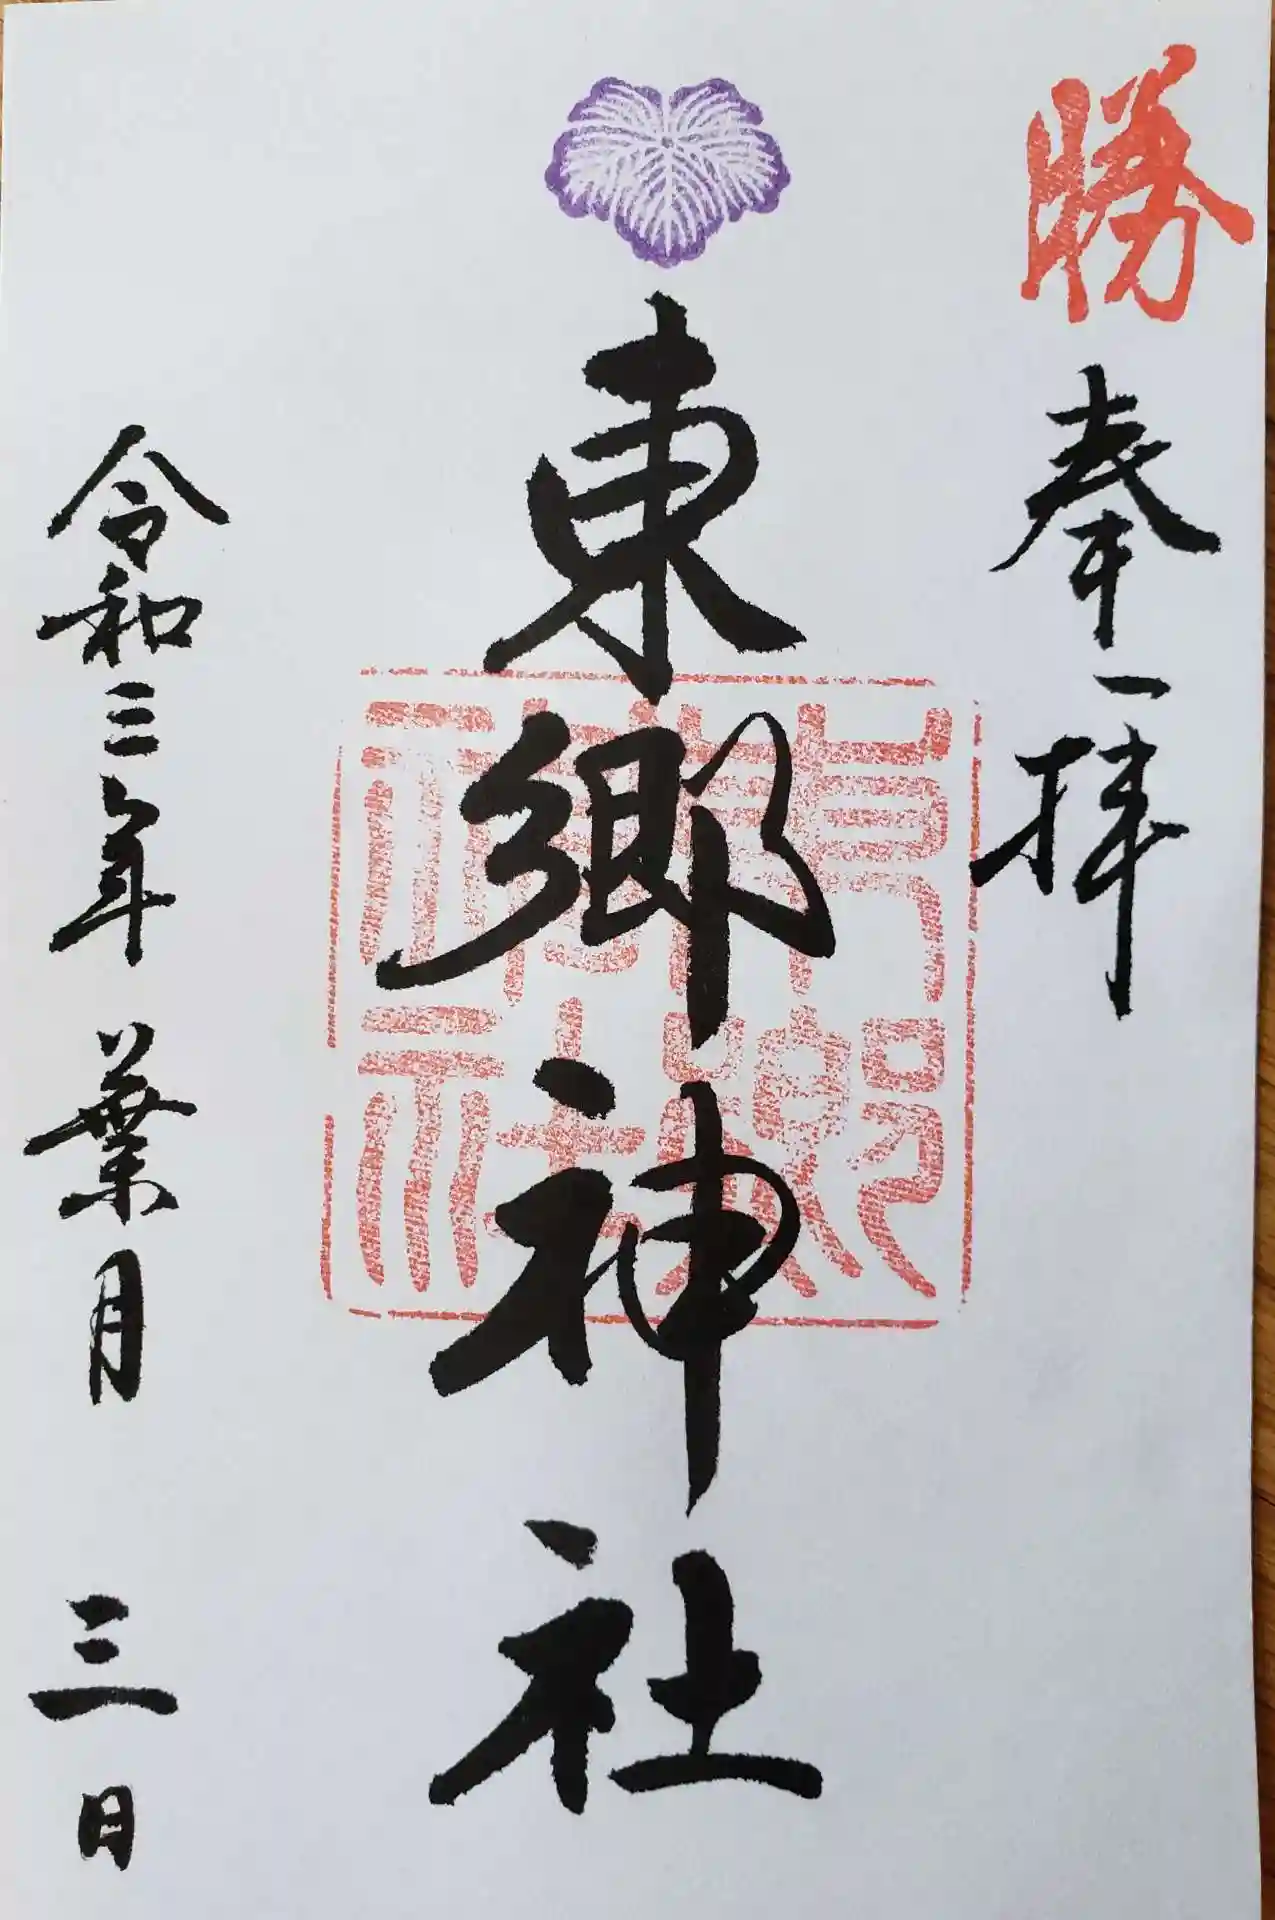 勝
奉一拝
東郷神社
東郷神社
令和三年 葉月 三日